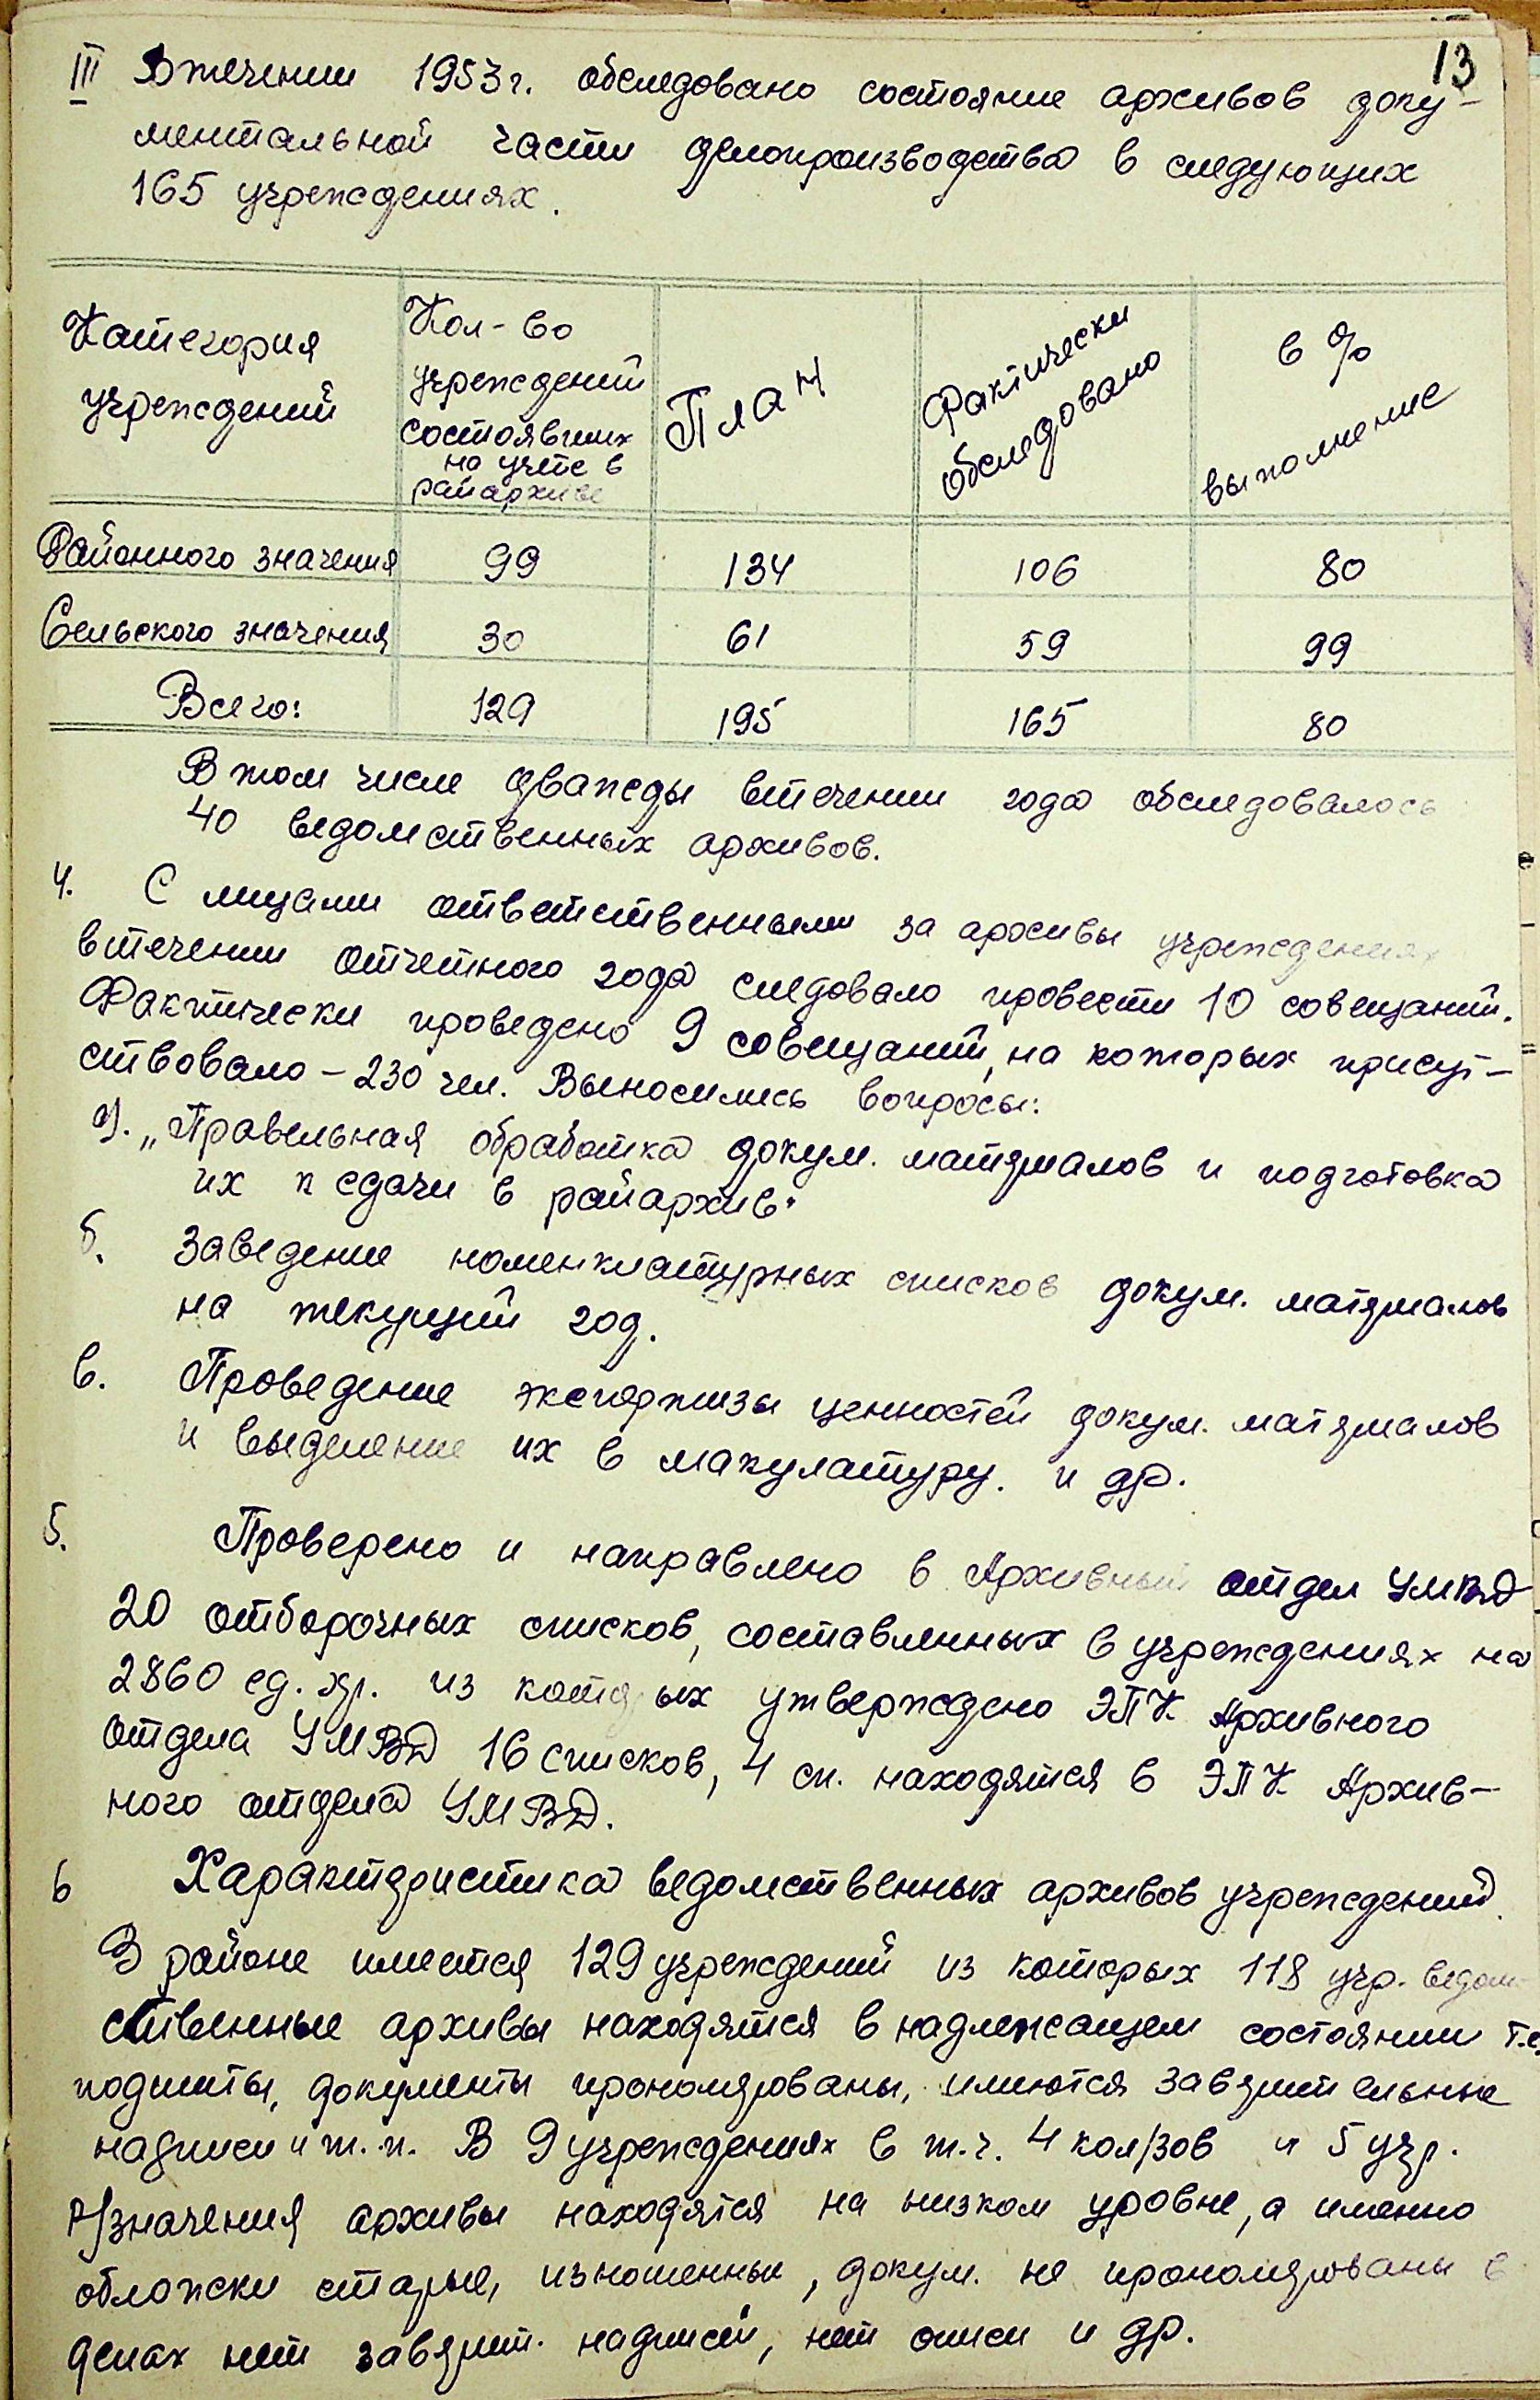 13
III Втечении 1953 г. обследовано состояние архивов доку-
ментальной части делопроизводства в следующих
165 учреждениях.
Категория учреждений
Кол-во учреждений состоявших на учете в райархиве
План
Фактически обследовано
в % выполнение
Районного значения 99 134 106 80
Сельского значения 30 61 59 99
Всего: 129 195 165 80
В том числе дважды втечении года обследовалось
40 ведомственных архивов.
4. С лицами ответственными за архивы учреждениях
втечении отчетного года следовало провести 10 совещаний.
Фактически проведено 9 совещаний, на которых присут-
ствовало - 230 чел. Выносились вопросы:
а). „Правельная обработка докум. материалов и подготовка
их к сдачи в райархив"
б. Заведение номенклатурных списков докум. материалов
на текущий год.
в. Проведение экспертизы ценностей докум. материалов
и выделение их в макулатуру. и др.
5. Проверено и направлено в Архивный отдел УМВД
20 отборочных списков, составленных в учреждениях на
2860 ед. хр. из которых утверждено ЭПК Архивного
отдела УМВД 16 списков, 4 сп. находятся в ЭПК Архив-
ного отдела УМВД.
6 Характеристика ведомственных архивов учреждений.
В районе имеется 129 учреждений из которых 118 учр. ведом-
ственные архивы находятся в надлежащем состоянии т.е.
подшиты, документы прономерованы, имеются заверительные
надписи и т.п. В 9 учреждениях в т.ч. 4 кол/зов и 5 учр.
р/значения архивы находятся на низком уровне, а именно
обложски старые, изношенные, докум. не прономерованы в
делах нет заверит. надписей, нет описи и др.